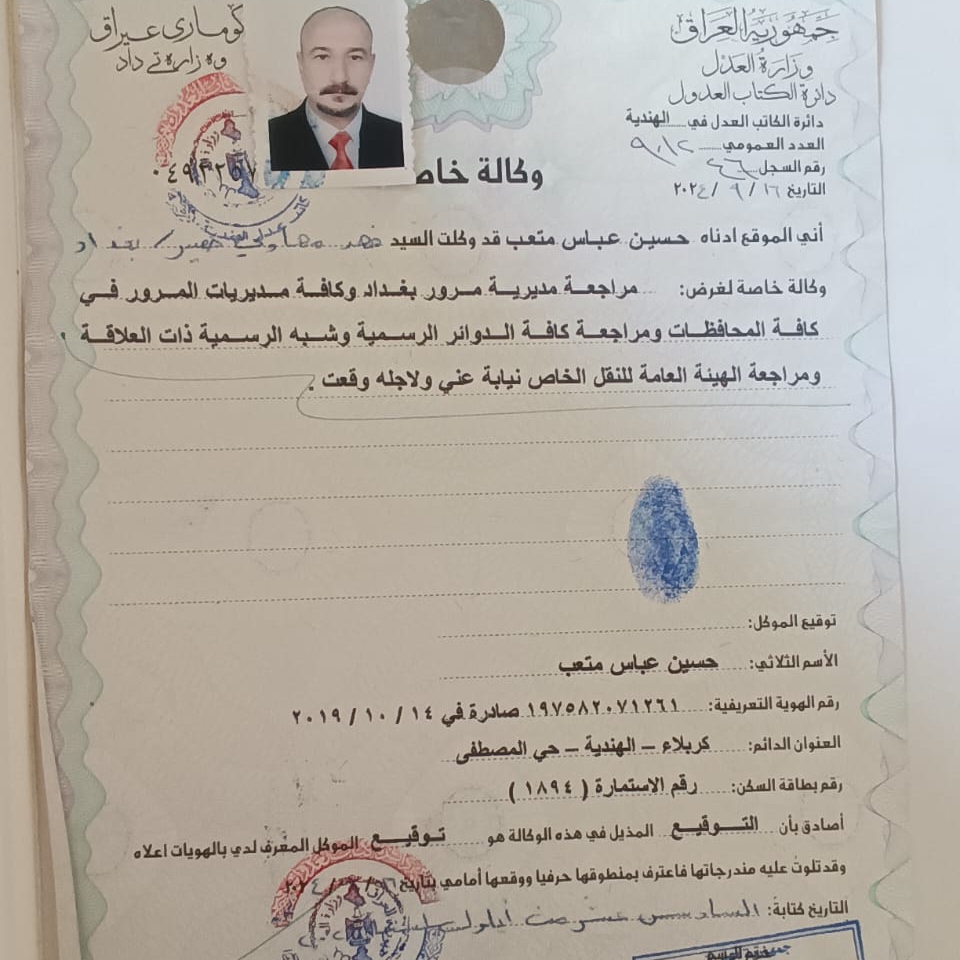 جمهورية العراق
وزارة العدل
دائرة الكتاب العدول
كوماری عیراق
وەزارەتی داد
دائرة الكاتب العدل في الهندية
العدد العمومي ٩٠١٢
رقم السجل ٤٦
التاريخ ١٦ / ٩ / ٢٠٢٤
وكالة خاصـ
أني الموقع ادناه حسين عباس متعب قد وكلت السيد فهد مهاوي / بغداد
وكالة خاصة لغرض: مراجعة مديرية مرور بغداد وكافة مديريات المرور في
كافة المحافظات ومراجعة كافة الدوائر الرسمية وشبه الرسمية ذات العلاقة
ومراجعة الهيئة العامة للنقل الخاص نيابة عني ولاجله وقعت .
توقيع الموكل:
الأسم الثلاثي: حسين عباس متعب
رقم الهوية التعريفية: ١٩٧٥٨٢٠٧١٢٦١ صادرة في ١٤ / ١٠ / ٢٠١٩
العنوان الدائم: كربلاء – الهندية – حي المصطفى
رقم بطاقة السكن: رقم الاستمارة ( ١٨٩٤ )
أصادق بأن التوقيع المذيل في هذه الوكالة هو توقيع الموكل المعرف لدي بالهويات اعلاه
وقد تلوت عليه مندرجاتها فاعترف بمنطوقها حرفيا ووقعها أمامي بتاريخ
التاريخ كتابة: السادس عشر من ايلول